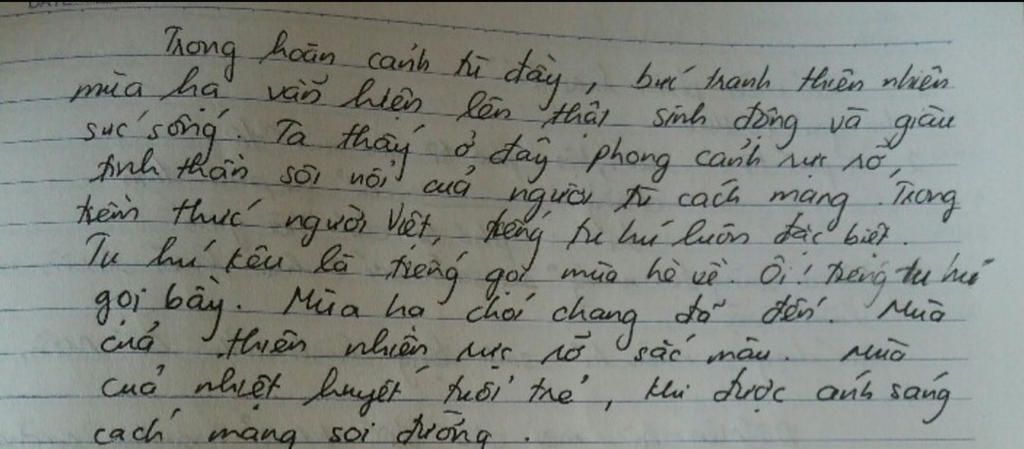 Trong hoàn cảnh tù đầy, bức tranh thiên nhiên
mùa hạ vẫn hiện lên thật sinh động và giàu
sức sống. Ta thấy ở đây phong cảnh rực rỡ,
tinh thần sôi nổi của người tù cách mạng. Trong
tiềm thức người Việt, tiếng tu hú luôn đặc biệt.
Tu hú kêu là tiếng gọi mùa hè về. Ôi! tiếng tu hú
gọi bầy. Mùa hạ chói chang đã đến. Mùa
của thiên nhiên rực rỡ sắc màu. Mùa
của nhiệt huyết tuổi trẻ, khi được ánh sáng
cách mạng soi đường.